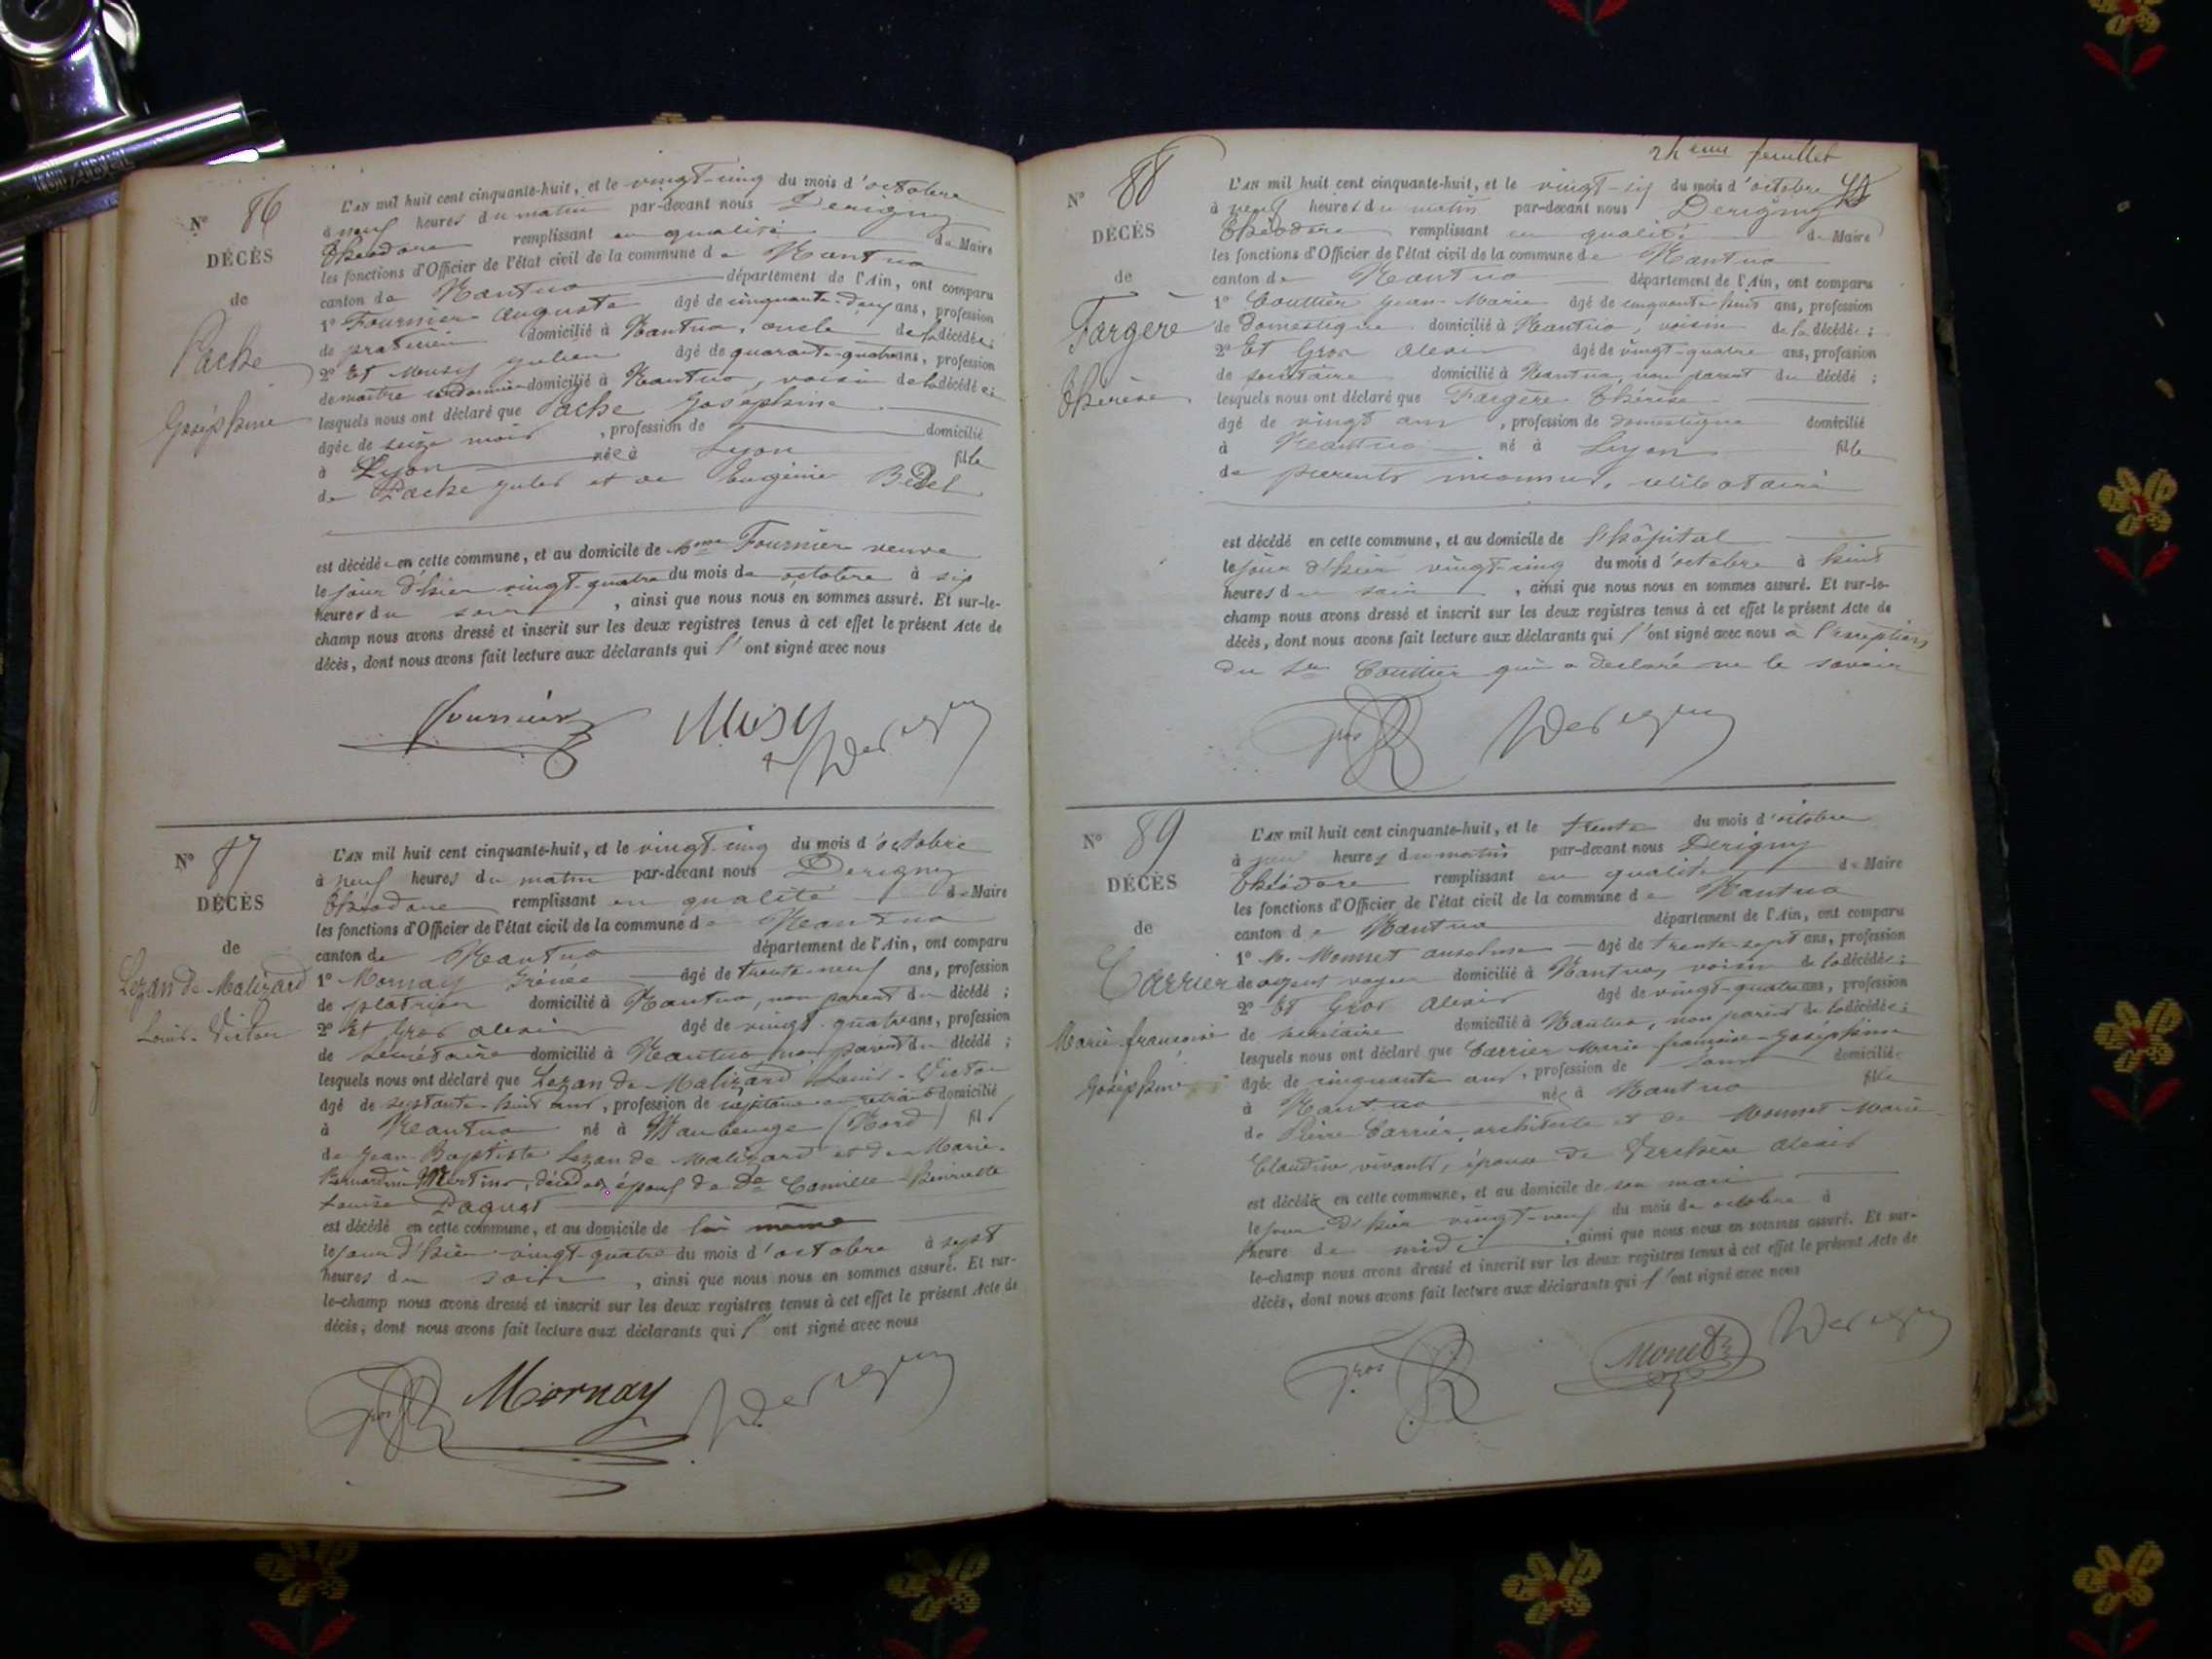 N° 86
DÉCÈS
de
Pache
Joséphine
L'AN mil huit cent cinquante-huit, et le vingt-cinq du mois d'octobre
à neuf heures du matin par-devant nous Derigny
Théodore remplissant en qualité de Maire
les fonctions d'Officier de l'état civil de la commune de Nantua
canton de Nantua département de l'Ain, ont comparu
1° Fournier Auguste âgé de cinquante-deux ans, profession
de praticien domicilié à Nantua, oncle de la décédée;
2° Et Musy Julien âgé de quarante-quatre ans, profession
de maître cordonnier domicilié à Nantua, voisin de la décédée;
lesquels nous ont déclaré que Pache Joséphine
âgée de seize mois, profession de domicilié
à Lyon née à Lyon fille
de Pache Jules et de Eugénie Bedel
est décédée en cette commune, et au domicile de Mme Fournier veuve
le jour d'hier vingt-quatre du mois de octobre à six
heures du soir, ainsi que nous nous en sommes assuré. Et sur-le-
champ nous avons dressé et inscrit sur les deux registres tenus à cet effet le présent Acte de
décès, dont nous avons fait lecture aux déclarants qui l'ont signé avec nous
Fournier Musy Derigny
N° 87
DÉCÈS
de
Lezan de Malizard
Louis-Victor
L'AN mil huit cent cinquante-huit, et le vingt-cinq du mois d'octobre
à neuf heures du matin par-devant nous Derigny
Théodore remplissant en qualité de Maire
les fonctions d'Officier de l'état civil de la commune de Nantua
canton de Nantua département de l'Ain, ont comparu
1° Mornay Irénée âgé de trente-neuf ans, profession
de platrier domicilié à Nantua, non parent du décédé;
2° Et Gros Alexis âgé de vingt-quatre ans, profession
de secrétaire domicilié à Nantua non parent du décédé;
lesquels nous ont déclaré que Lezan de Malizard Louis-Victor
âgé de septante-huit ans, profession de capitaine en retraite domicilié
à Nantua né à Maubeuge (Nord) fils
de Jean-Baptiste Lezan de Malizard et de Marie-
Bernardine Martino, décédés, époux de De Camille Henriette
Louise Paquet
est décédé en cette commune, et au domicile de lui même
le jour d'hier vingt-quatre du mois d'octobre à sept
heures du soir, ainsi que nous nous en sommes assuré. Et sur-
le-champ nous avons dressé et inscrit sur les deux registres tenus à cet effet le présent Acte de
décès, dont nous avons fait lecture aux déclarants qui l'ont signé avec nous
Gros Mornay Derigny
24eme feuillet
N° 88
DÉCÈS
de
Fargère
Thérèse
L'AN mil huit cent cinquante-huit, et le vingt-six du mois d'octobre
à neuf heures du matin par-devant nous Derigny
Théodore remplissant en qualité de Maire
les fonctions d'Officier de l'état civil de la commune de Nantua
canton de Nantua département de l'Ain, ont comparu
1° Couttier Jean-Marie âgé de cinquante-huit ans, profession
de domestique domicilié à Nantua, voisin de la décédée;
2° Et Gros Alexis âgé de vingt-quatre ans, profession
de secrétaire domicilié à Nantua, non parent du décédé;
lesquels nous ont déclaré que Fargère Thérèse
âgé de vingt ans, profession de domestique domicilié
à Nantua né à Lyon fille
de parents inconnus, célibataire
est décédé en cette commune, et au domicile de l'hôpital
le jour d'hier vingt-cinq du mois d'octobre à huit
heures du soir, ainsi que nous nous en sommes assuré. Et sur-le-
champ nous avons dressé et inscrit sur les deux registres tenus à cet effet le présent Acte de
décès, dont nous avons fait lecture aux déclarants qui l'ont signé avec nous à l'exception
du sr Couttier qui a déclaré ne le savoir
Gros Derigny
N° 89
DÉCÈS
de
Carrier
Marie françoise
Joséphine
L'AN mil huit cent cinquante-huit, et le trente du mois d'octobre
à neuf heures du matin par-devant nous Derigny
Théodore remplissant en qualité de Maire
les fonctions d'Officier de l'état civil de la commune de Nantua
canton de Nantua département de l'Ain, ont comparu
1° M. Monnet Anselme âgé de trente-sept ans, profession
de agent voyer domicilié à Nantua, voisin de la décédée;
2° Et Gros Alexis âgé de vingt-quatre ans, profession
de secrétaire domicilié à Nantua, non parent de la décédée;
lesquels nous ont déclaré que Carrier Marie-françoise-Joséphine
âgée de cinquante ans, profession de sans domiciliée
à Nantua née à Nantua fille
de Pierre Carrier, architecte et de Monnet Marie-
Claudine vivants, épouse de Verchère Alexis
est décédée en cette commune, et au domicile de son mari
le jour d'hier vingt-neuf du mois de octobre à
heure de midi, ainsi que nous nous en sommes assuré. Et sur-
le-champ nous avons dressé et inscrit sur les deux registres tenus à cet effet le présent Acte de
décès, dont nous avons fait lecture aux déclarants qui l'ont signé avec nous
Gros Monet Derigny